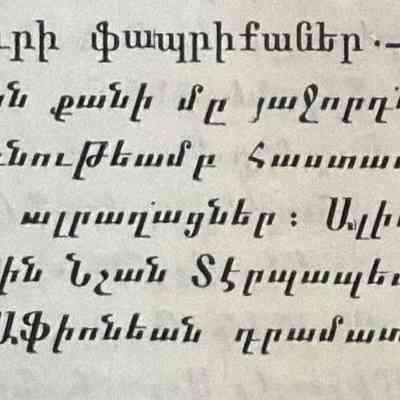 ւրի փապրիքաներ.—
ն քանի մը յաջորդ
նութեամբ հաստատ
ալրաղացներ : Ալի
ին Նշան Տէրպապե
Աֆիոնեան դրամատ